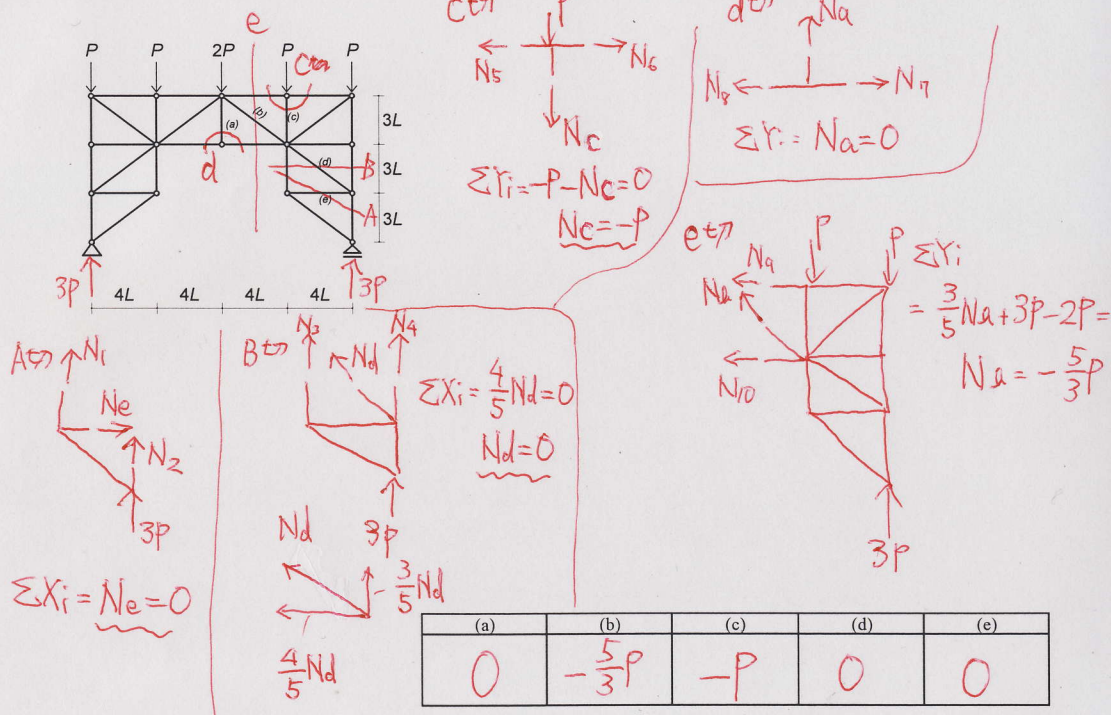 e
P P 2P P P
C切
(a) (b) (c)
d
(d) B
(e) A
3L
3L
3L
3P 3P
4L 4L 4L 4L
C切
P
N5 N6
Nc
ΣYi=-P-Nc=0
Nc=-P
d切
Na
N8 N7
ΣYi=Na=0
e切
P P
Na
N10
3P
ΣYi
=3/5Na+3P-2P=
Na=-5/3P
A切
N1
Ne
N2
3P
ΣXi=Ne=0
B切
N3 N4
Nd
3P
ΣXi=4/5Nd=0
Nd=0
Nd
3/5Nd
4/5Nd
(a) (b) (c) (d) (e)
0 -5/3P -P 0 0